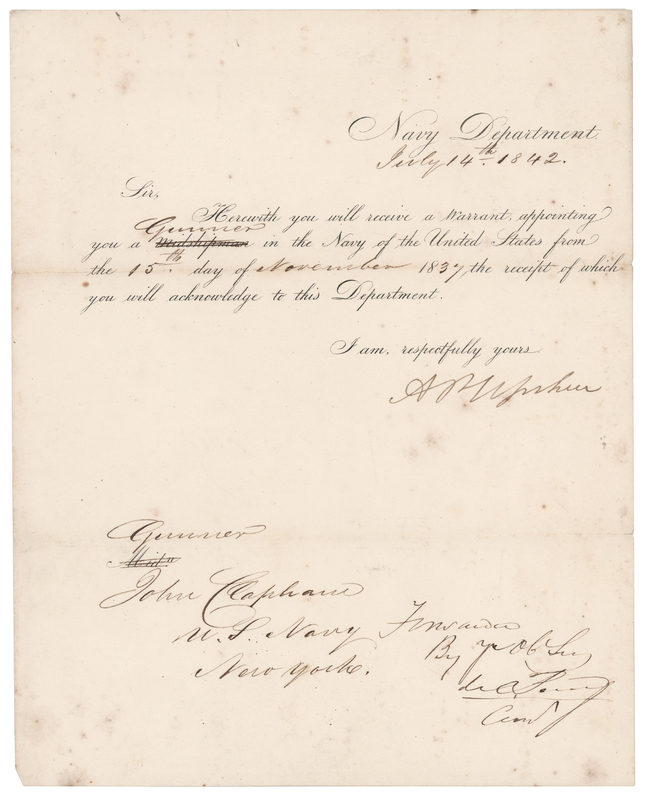 Navy Department.
July 14th. 1842.
Sir,
Herewith you will receive a Warrant, appointing
Gunner
you a Midshipman in the Navy of the United States from
the 15th. day of November 1837, the receipt of which
you will acknowledge to this Department.
I am, respectfully yours
A P Upshur
Gunner
Mid.n
John Claphane
U. S. Navy
New York.
By